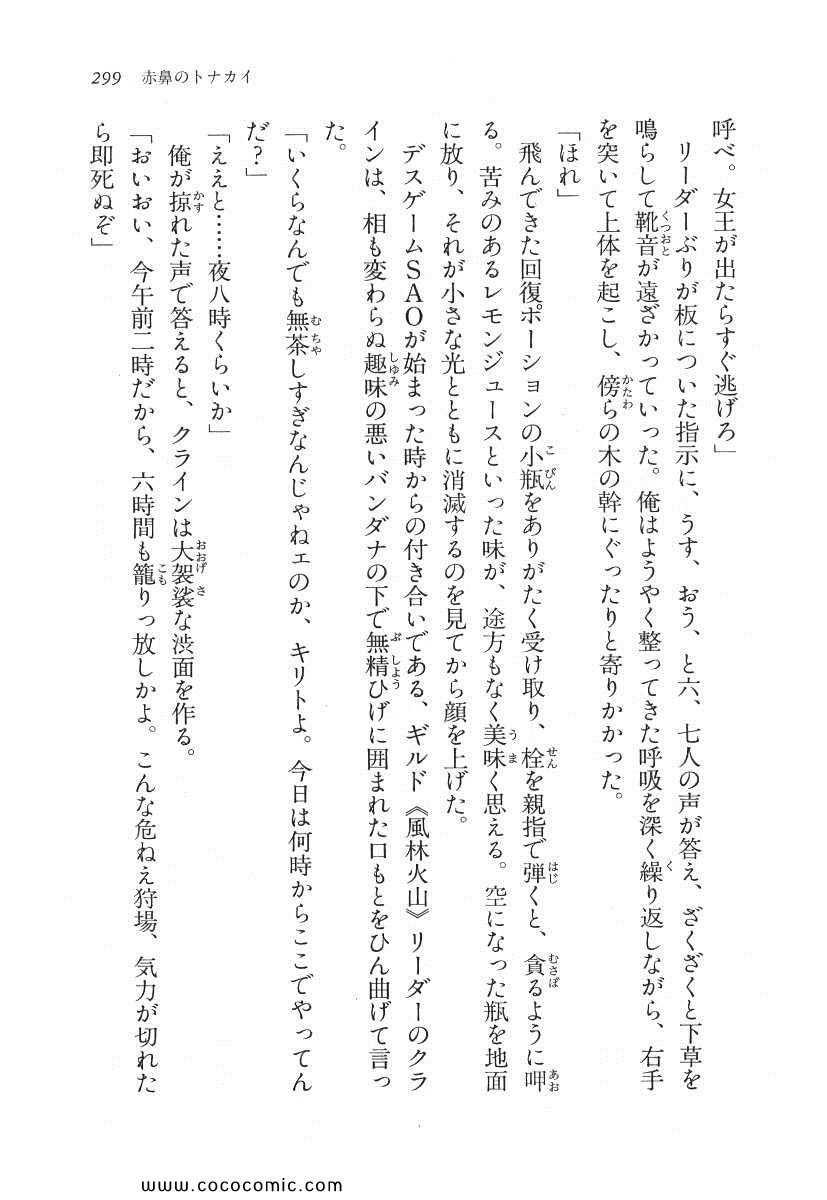 299 赤鼻のトナカイ
呼べ。女王が出たらすぐ逃げろ」
　リーダーぶりが板についた指示に、うす、おう、と六、七人の声が答え、ざくざくと下草を
鳴らして靴音が遠ざかっていった。俺はようやく整ってきた呼吸を深く繰り返しながら、右手
を突いて上体を起こし、傍らの木の幹にぐったりと寄りかかった。
「ほれ」
　飛んできた回復ポーションの小瓶をありがたく受け取り、栓を親指で弾くと、貪るように呷
る。苦みのあるレモンジュースといった味が、途方もなく美味く思える。空になった瓶を地面
に放り、それが小さな光とともに消滅するのを見てから顔を上げた。
　デスゲームＳＡＯが始まった時からの付き合いである、ギルド《風林火山》リーダーのクラ
インは、相も変わらぬ趣味の悪いバンダナの下で無精ひげに囲まれた口もとをひん曲げて言っ
た。
「いくらなんでも無茶しすぎなんじゃねェのか、キリトよ。今日は何時からここでやってん
だ？」
「ええと……夜八時くらいか」
　俺が掠れた声で答えると、クラインは大袈裟な渋面を作る。
「おいおい、今午前二時だから、六時間も籠りっ放しかよ。こんな危ねえ狩場、気力が切れた
ら即死ぬぞ」
www.cococomic.com